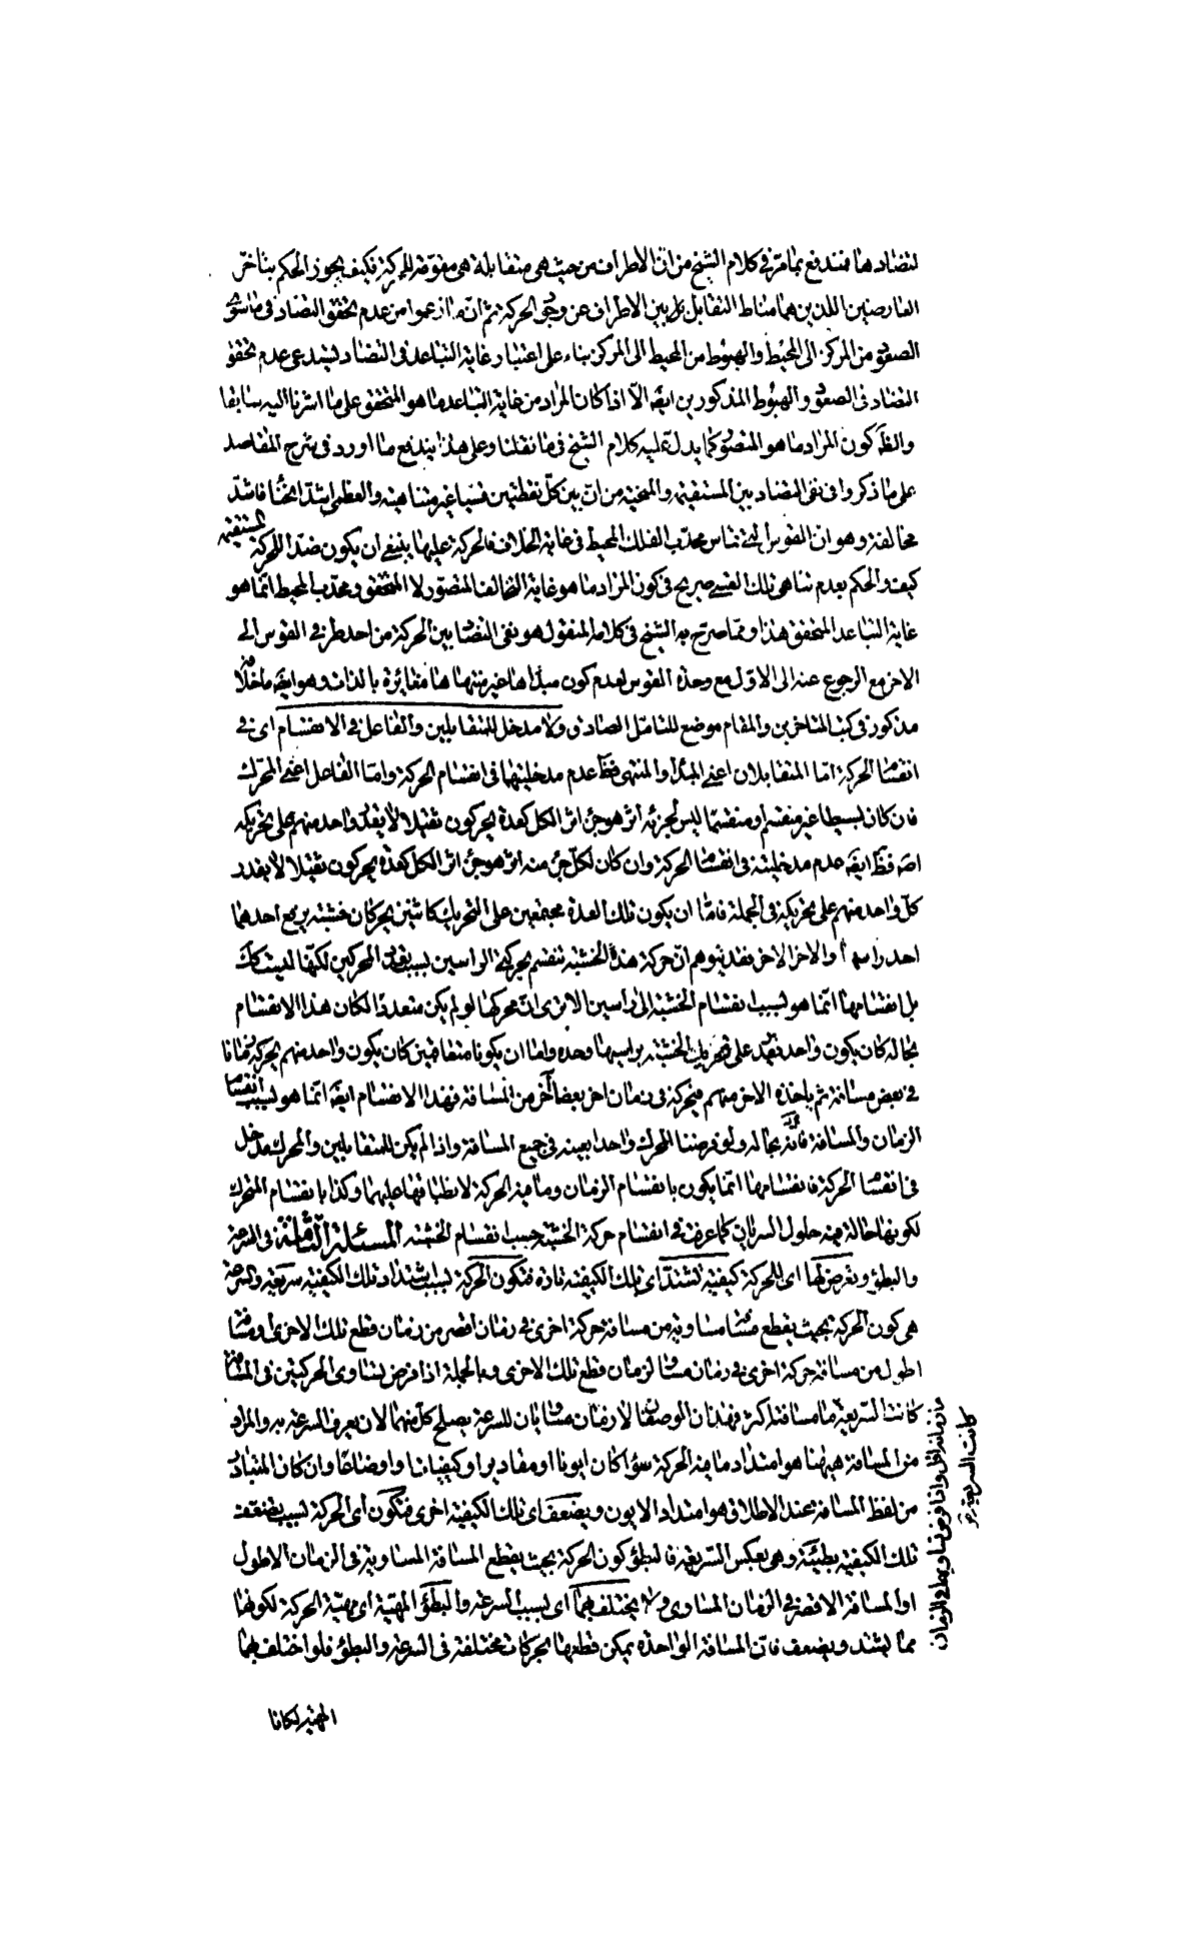 لتضادها فمندفع بما مرّ في كلام الشيخ من ان الاطراف من حيث هي متقابلة هي مقوّمة للحركة فكيف يجوز الحكم بتاخر
العارضين اللذين هما مناط التقابل بل بين الاطراف عن وجود الحركة ثم انّ ما زعموا من عدم تحقق التضاد في ما سوى
الصعود من المركز الى المحيط والهبوط من المحيط الى المركز بناء على اعتبار غاية التباعد في التضاد ليستدعى عدم تحقق
التضاد في الصعود والهبوط المذكورين ايضا الّا اذا كان المراد من غاية التباعد ما هو المتحقق على ما اشرنا اليه سابقا
والظ كون المراد ما هو المتصور كما يدل عليه كلام الشيخ في ما نقلنا وعلى هذا يندفع ما اورد في شرح المقاصد
على ما ذكروا في نفى التضاد بين المستقيمة والمنحنية من ان بين كلّ نقطتين قسيا غير متناهية والعظمى اشدّ انحناء فاشدّ
مخالفة وهو ان القوس التي تماس محدّب الفلك المحيط في غاية الخلاف فالحركة عليها ينبغي ان يكون ضدا للحركة المستقيمة
كيف والحكم بعدم تناهى تلك القسي صريح في كون المراد ما هو غاية التخالف المتصوّر لا المتحقق ومحدّب المحيط انّما هو
غاية التباعد المتحقق هذا وممّا صرّح به الشيخ في كلامه المنقول هو نفى التضاد بين الحركة من احد طرفي القوس الى
الاخر مع الرجوع عنه الى الاوّل مع وحدة القوس لعدم كون مبداها غير منتهاها مغايرة بالذات وهو ايضا ما خلا
مذكور في كتب المتاخرين والمقام موضع للتامّل الصادق ولا مدخل للمتقابلين والفاعل في الانقسام اى في
انقسام الحركة امّا المتقابلان اعنى المبدا والمنتهى فظ عدم مدخليتهما في انقسام الحركة وامّا الفاعل اعنى المحرّك
فان كان بسيطا غير منقسم او منقسما ليس لجزئه اثر هو جزء اثر الكل كعدة يحركون ثقيلا لا يقدر واحد منهم على تحريكه
اصلا فظ ايضا عدم مدخليته في انقسام الحركة وان كان لكلّ جزء منه اثر هو جزء اثر الكل كعدة يحركون ثقيلا لا يقدر
كلّ واحد منهم على تحريكه في الجملة فامّا ان يكون تلك العدة مجتمعين على التحريك كاثنين يحركان خشبة يرفع احدهما
احد راسيها والاخر الاخر فقد يتوهم ان حركة هذه الخشبة تنقسم بحركة الراسين بسبب تعدد المحركين لكنّها ليست كك
بل انقسامها انّما هو بسبب انقسام الخشبة الى راسين الا ترى انّ محركها لو لم يكن متعددا لكان هذا الانقسام
بحاله كان يكون واحد يقدر على تحريك الخشبة براسيها وحده وامّا ان يكونا متعاقبين كان يكون واحد منهم يحركه زمانا
في بعض مسافة ثم ياخذه الاخر منهم فيحركه في زمان اخر بعضا آخر من المسافة فهذا الانقسام ايضا انّما هو لسبب انقسام
الزمان والمسافة فانّه بحاله ولو فرضنا المحرك واحدا بعينه في جميع المسافة واذا لم يكن للمتقابلين والمحرك مدخل
في انقسام الحركة فانقسامها انّما يكون بانقسام الزمان وما فيه الحركة لانطباقها عليهما وكذا بانقسام المتحرك
لكونها حالة فيه حلول السريان كما عرفت في انقسام حركة الخشبة بحسب انقسام الخشبة المسئلة الثامنة في السرعة
والبطؤ وتعرض لها اى للحركة كيفية تشتدّ اى تلك الكيفية تارة فتكون الحركة بسبب اشتداد تلك الكيفية سريعة والسرعة
هي كون الحركة بحيث يقطع مسافة مساوية من مسافة حركة اخرى في زمان اقصر من زمان قطع تلك الاخرى او مسافة
اطول من مسافة حركة اخرى في زمان مساو لزمان قطع تلك الاخرى وبالجملة اذا فرض تساوى الحركتين في المسافة
كانت السريعة ما مسافته اكثر فهذان الوصفان لازمان مساويان للسرعة يصلح كلّ منهما لان يعرف السرعة به والمراد
من المسافة هيهنا هو امتداد ما فيه الحركة سواء كان ايونا او مقادير او كيفيات او اوضاعا وان كان المتبادر
من لفظ المسافة عند الاطلاق هو امتداد الايون ويضعف اى تلك الكيفية اخرى فتكون اى الحركة بسبب ضعف
تلك الكيفية بطيئة وهي بعكس السريعة فالبطؤ كون الحركة بحيث يقطع المسافة المساوية في الزمان الاطول
او المسافة الاقصر في الزمان المساوى ولا يختلف بهما اى بسبب السرعة والبطؤ المهيّة اى مهيّة الحركة لكونها
ممّا يشتد ويضعف فانّ المسافة الواحدة يمكن قطعها بحركات مختلفة في السرعة والبطؤ فلو اختلف بهما
ما زمانه اقل واذا فرض تساويهما في الزمان
كانت السريعة
المهية لكانا